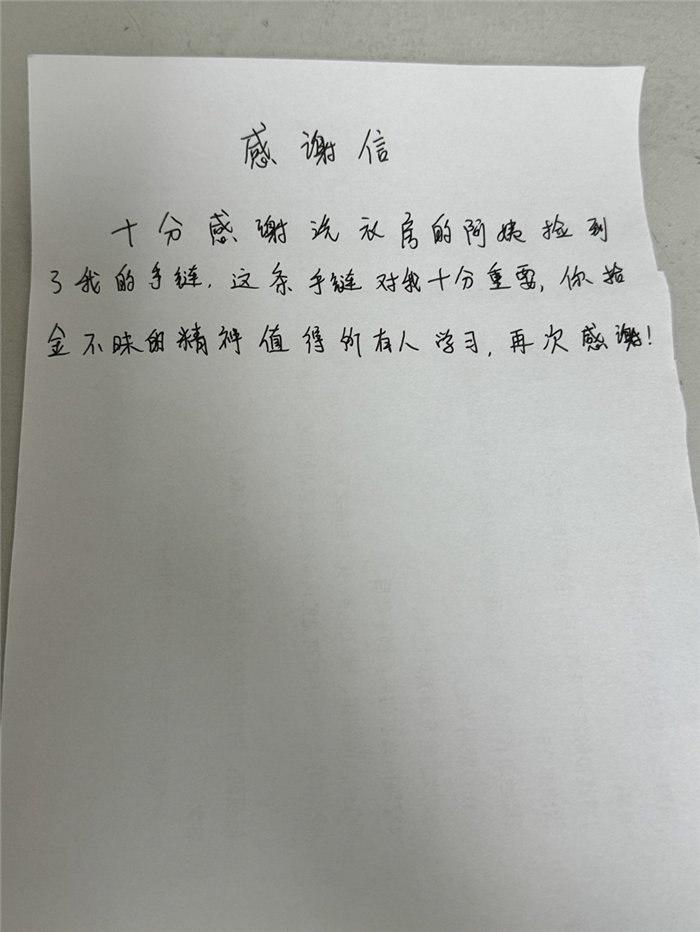 感谢信
十分感谢洗衣房的阿姨捡到
了我的手链，这条手链对我十分重要，你拾
金不昧的精神值得所有人学习，再次感谢！